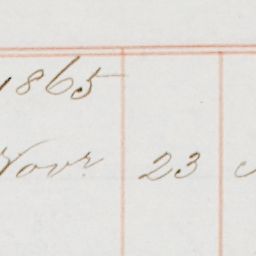 1865
Novr. 23